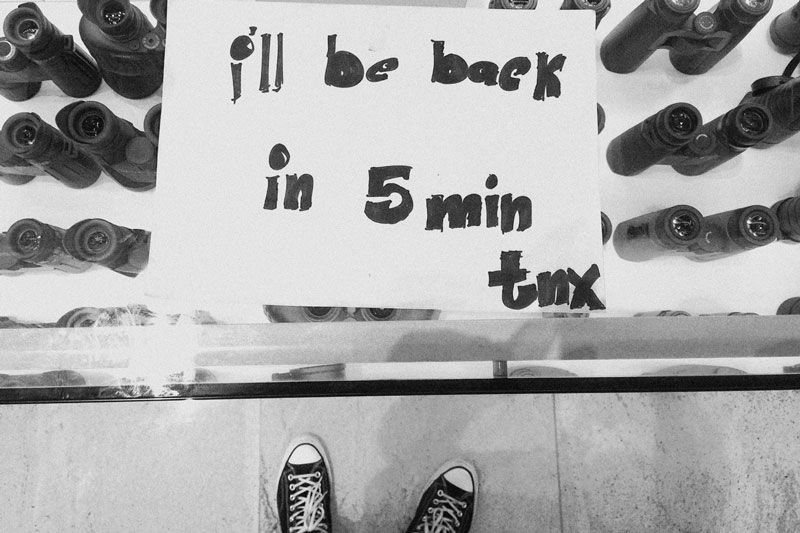 i'll be back
in 5 min
tnx